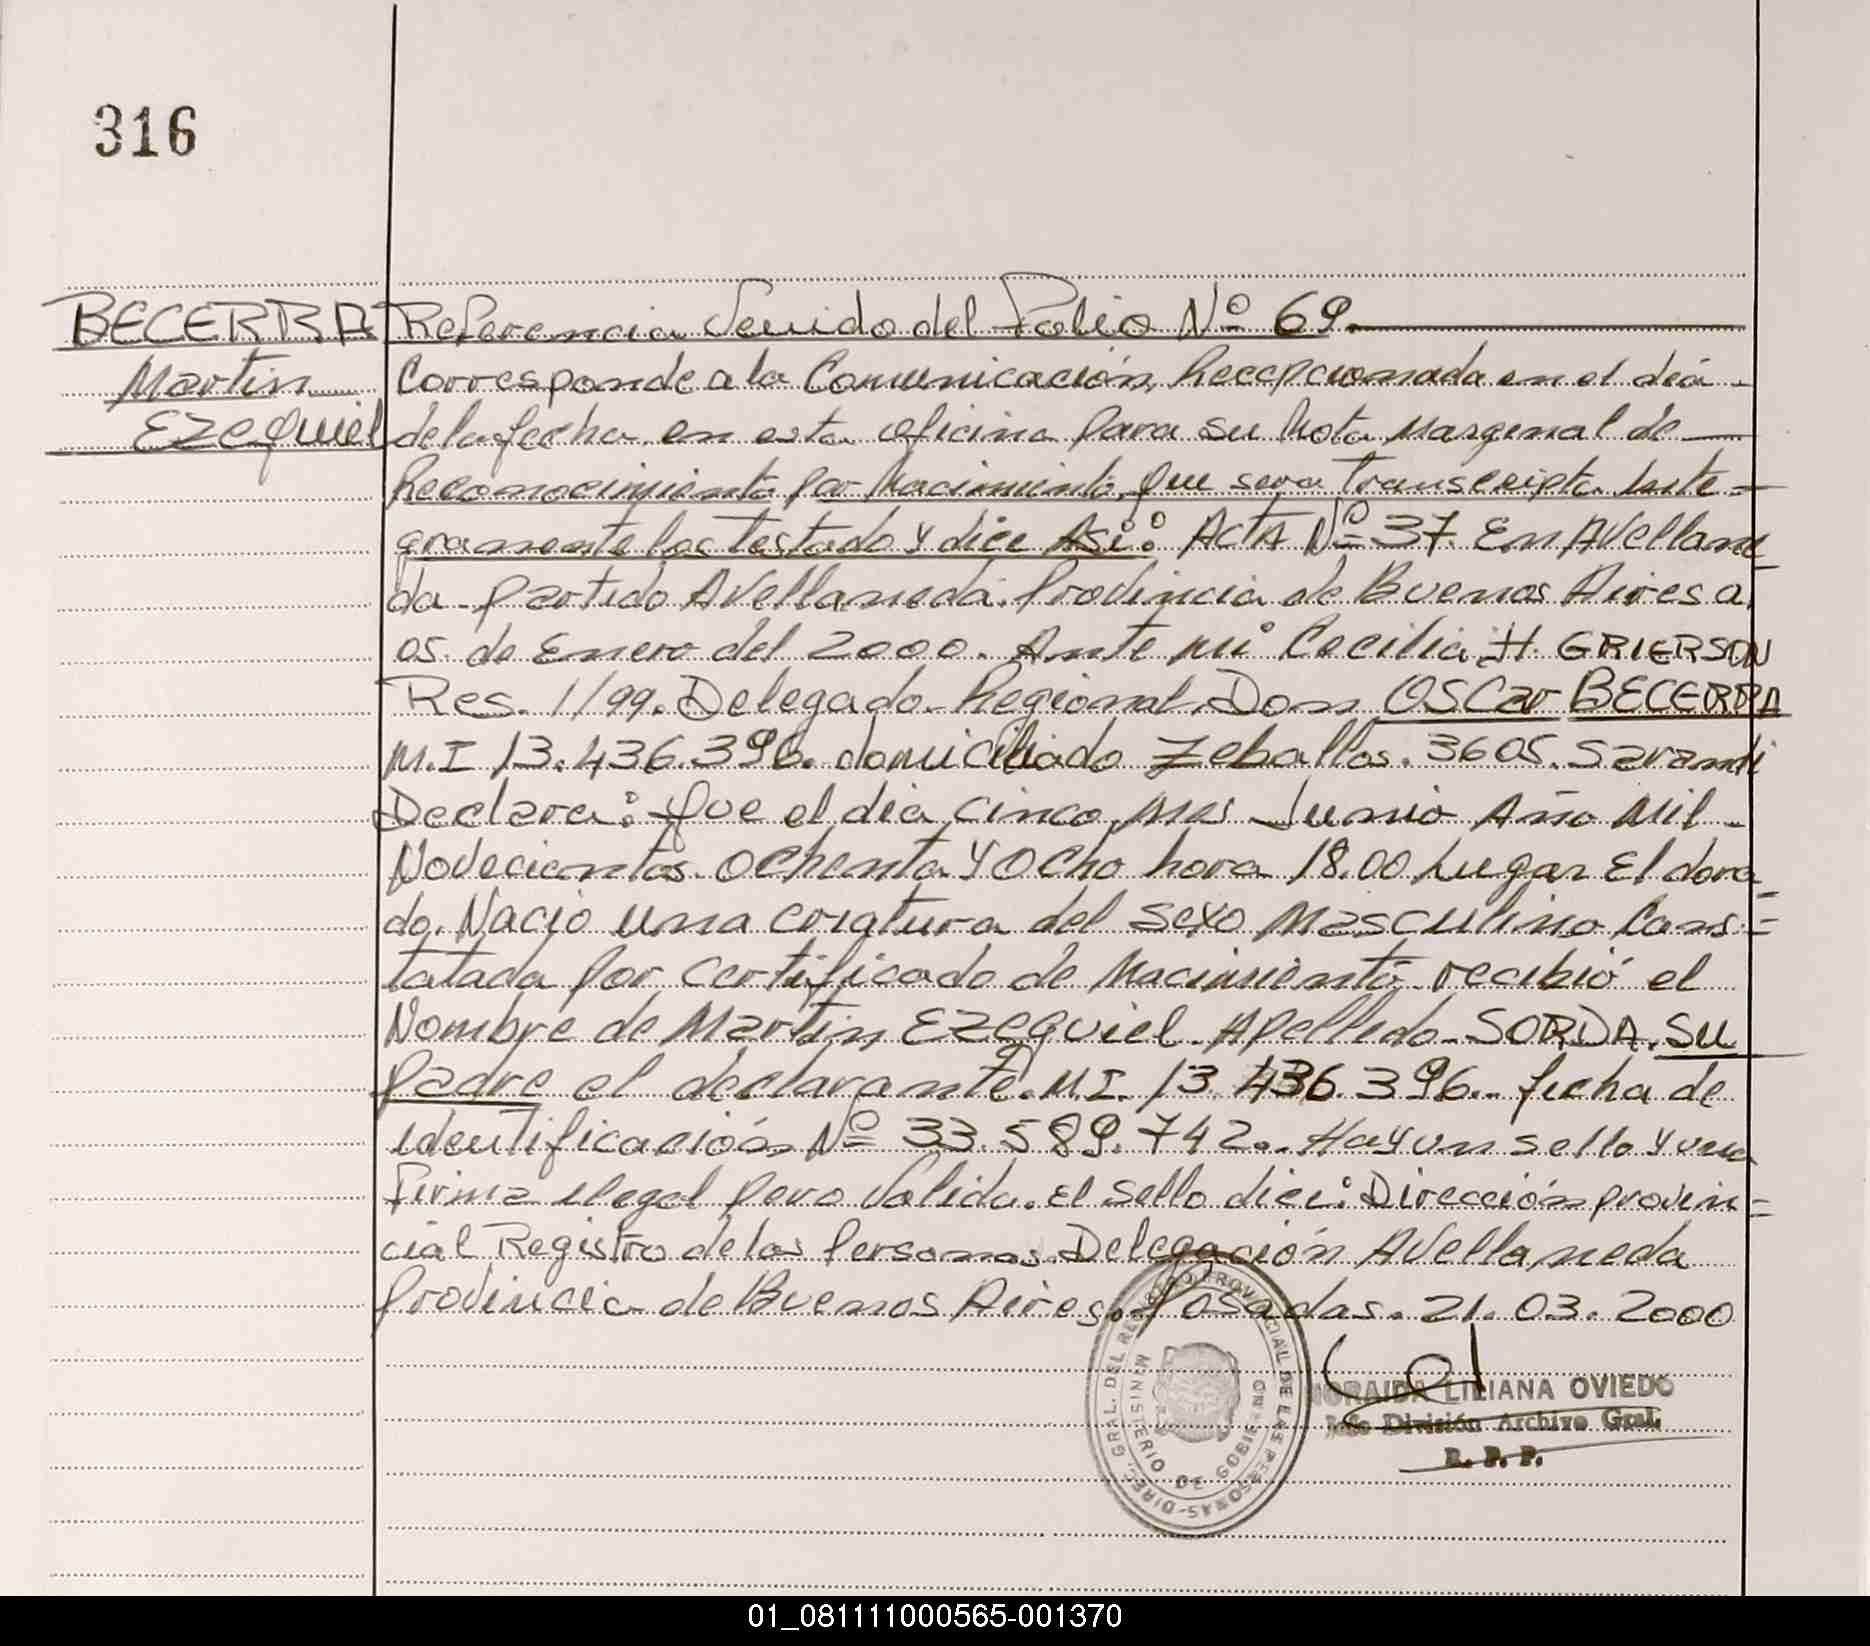 316
BECERRA
Martin
Ezequiel
Referencia Venido del Folio Nº 69.
Corresponde a la Comunicación, Recepcionada en el dia -
de la fecha en esta oficina para su Nota Marginal de —
Reconocimiento por Nacimiento, que sera transcripta inte=
gramente los testado y dice Asi: ACTA Nº 37. En Avellane
da - partido Avellaneda. Provincia de Buenos Aires a.
05. de Enero del 2000. Ante mi Cecilia H. GRIERSON
Res. 1/99. Delegado Regional Don OSCar BECERRA
M.I 13.436.396. domiciliado Zeballos. 3605. Sarandi
Declara: Que el dia cinco mes Junio Año Mil -
Novecientos Ochenta y Ocho hora 18.00 Lugar El dora
do. Nacio una criatura del sexo Masculino Cons=
tatada por Certificado de Nacimiento recibió el
Nombre de Martin Ezequiel - Apellido - SORDA. SU
padre el declarante. M.I. 13.436.396.. ficha de
identificación Nº 33.589.742.. Hay un sello y una
firma ilegal pero Valida. El sello dice: Dirección provin=
cial Registro de las Personas. Delegación Avellaneda
Provincia de Buenos Aires. Posadas. 21. 03. 2000
DIREC. GRAL. DEL REGISTRO PROVINCIAL DE LAS PERSONAS
MINISTERIO DE GOBIERNO
NORAIDA LILIANA OVIEDO
Jefe División Archivo Gral.
R. P. P.
01_081111000565-001370